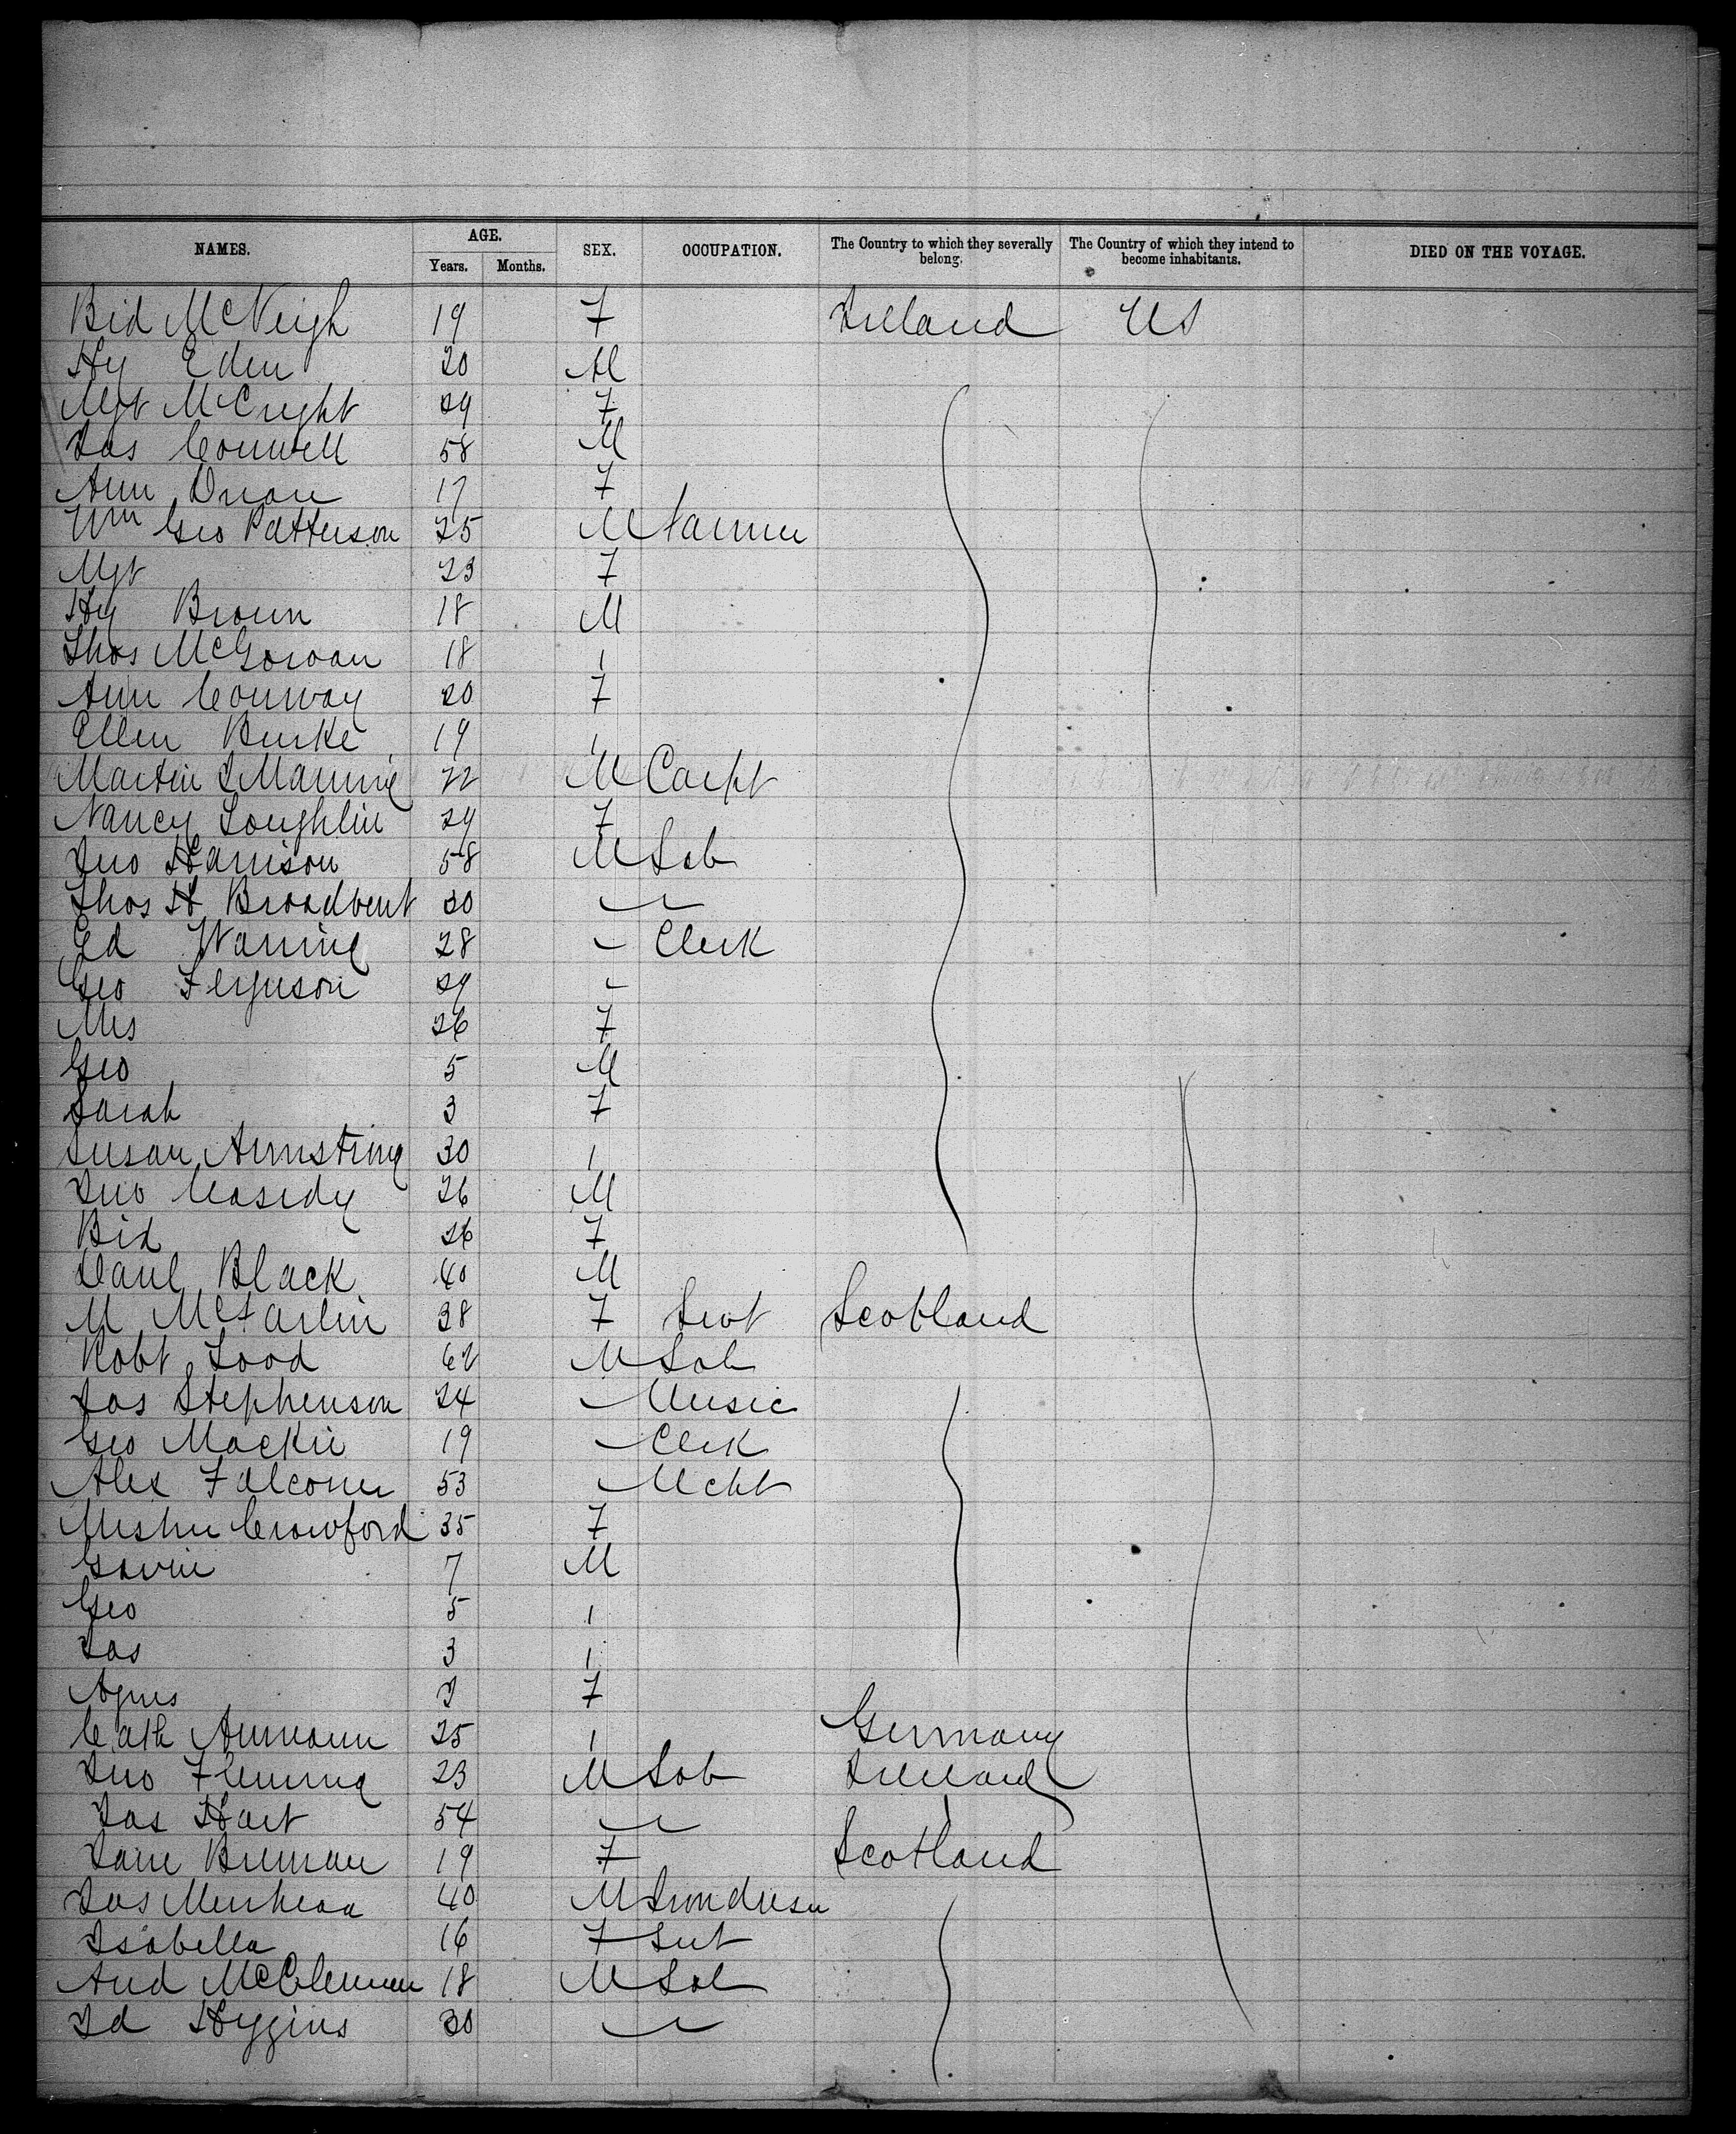 NAMES. AGE. SEX. OCCUPATION. The Country to which they severally belong. The Country of which they intend to become inhabitants. DIED ON THE VOYAGE.
Years. Months.
Bid McVeigh 19 F Ireland US
Hy Eden 20 M
Mgt McCright 29 F
Jas Conwell 58 M
Ann Druan 17 F
Wm Geo Patterson 25 M Farmer
Mgt 23 F
Hy Brown 18 M
Thos McGowan 18 1
Ann Conway 20 F
Ellen Burke 19 1
Martin J Manning 22 M Carpt
Nancy Loughlin 24 F
Jno Harrison 58 M Lab
Thos H Broadbent 20
Ed Waring 28 - Clerk
Geo Ferguson 29 -
Mrs 26 F
Geo 5 M
Sarah 3 F
Susan Armstrong 30 1
Jno Casidy 26 M
Bid 26 F
Danl Black 40 M
M McFarlin 38 F Servt Scotland
Robt Lood 62 M Lab
Jas Stephenson 24 - Music
Geo Mackie 19 - Clerk
Alex Falconer 53 - Mcht
Crawford 35 F
Gavin 7 M
Geo 5 1
Jas 3 1
Agnes 2 F
Cath Ammann 25 1 Germany
Jno Fleming 23 M Lab Ireland
Jas Hart 54
Jane Brennan 19 F Scotland
Jas Muirhead 40 M
Isabella 16 F Sert
And McClennan 18 M Lab
Ed Higgins 30